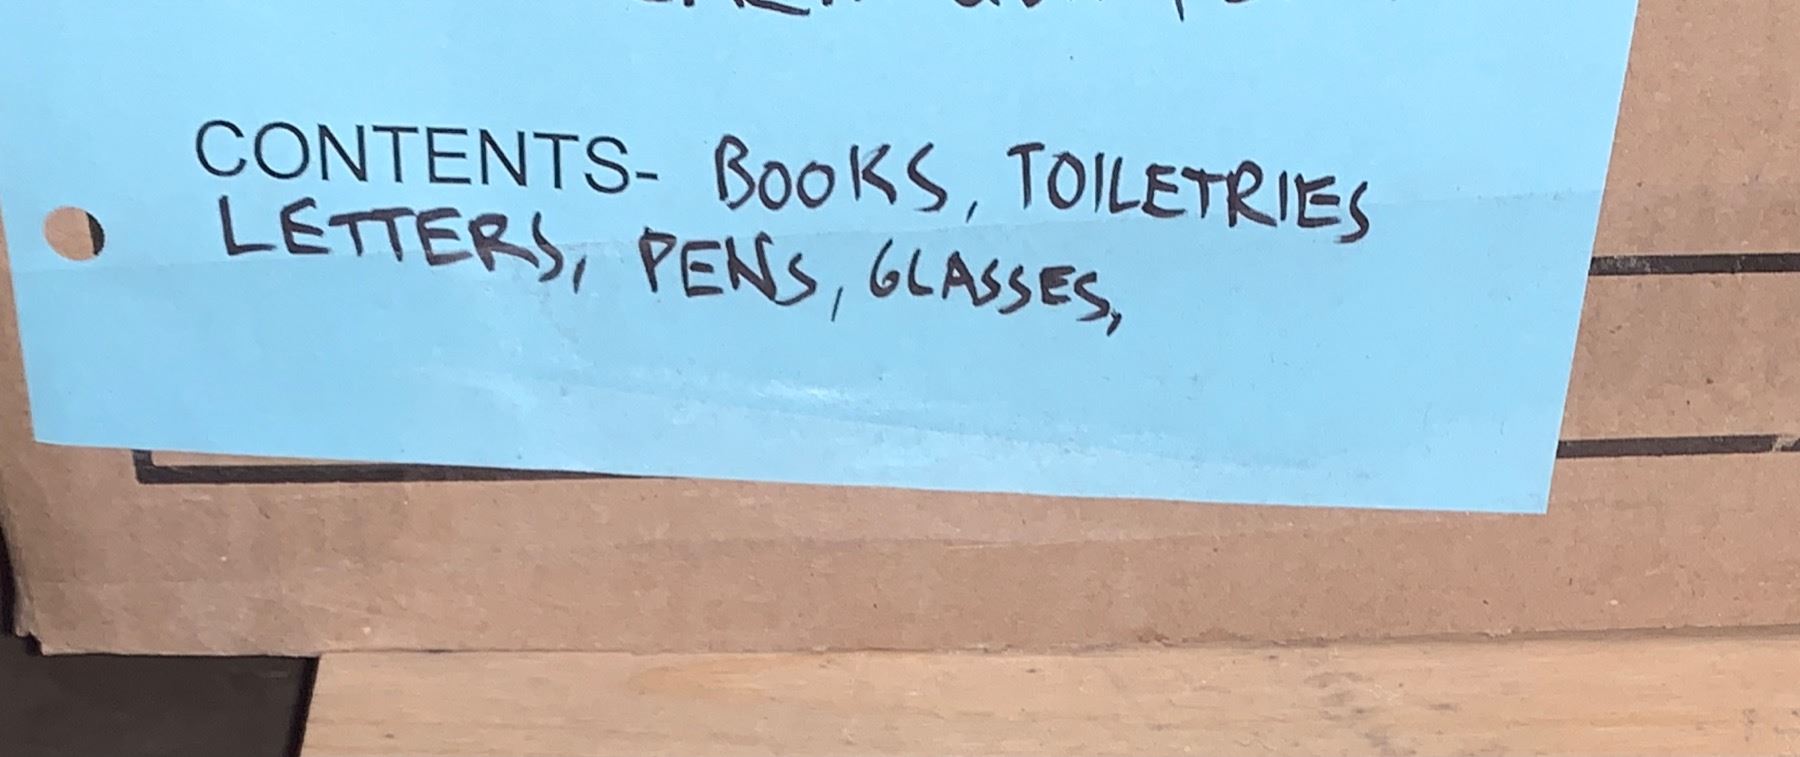 CONTENTS- BOOKS, TOILETRIES
LETTERS, PENS, GLASSES,